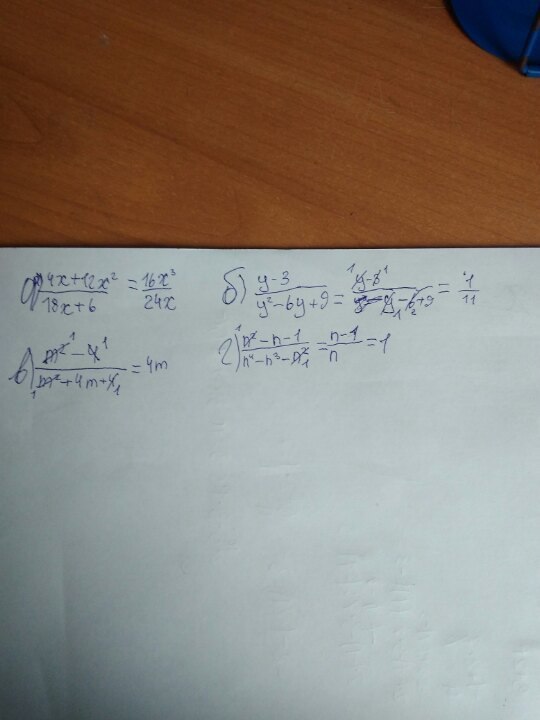 а) 4x+12x² / 18x+6 = 16x³ / 24x
б) y-3 / y²-6y+9 = ¹y-3¹ / y₁-6₂+9 = 1 / 11
в) m²¹-4¹ / ₁m²+4m+4₁ = 4m
г) ¹n²-n-1 / n⁴-n³-n²₁ = n-1 / n = 1